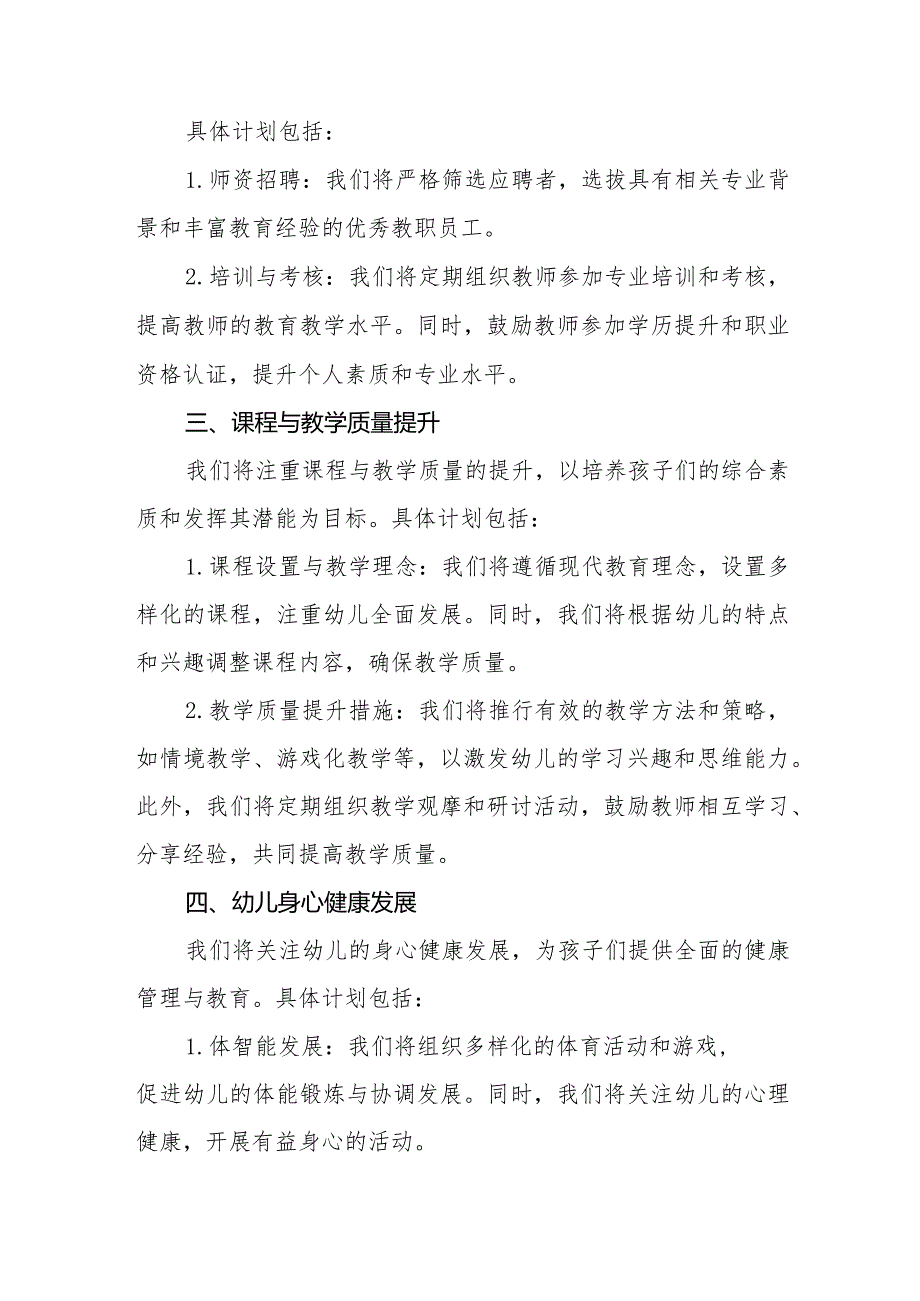 具体计划包括：
1.师资招聘：我们将严格筛选应聘者，选拔具有相关专业背
景和丰富教育经验的优秀教职员工。
2.培训与考核：我们将定期组织教师参加专业培训和考核，
提高教师的教育教学水平。同时，鼓励教师参加学历提升和职业
资格认证，提升个人素质和专业水平。
三、课程与教学质量提升
我们将注重课程与教学质量的提升，以培养孩子们的综合素
质和发挥其潜能为目标。具体计划包括：
1.课程设置与教学理念：我们将遵循现代教育理念，设置多
样化的课程，注重幼儿全面发展。同时，我们将根据幼儿的特点
和兴趣调整课程内容，确保教学质量。
2.教学质量提升措施：我们将推行有效的教学方法和策略，
如情境教学、游戏化教学等，以激发幼儿的学习兴趣和思维能力。
此外，我们将定期组织教学观摩和研讨活动，鼓励教师相互学习、
分享经验，共同提高教学质量。
四、幼儿身心健康发展
我们将关注幼儿的身心健康发展，为孩子们提供全面的健康
管理与教育。具体计划包括：
1.体智能发展：我们将组织多样化的体育活动和游戏，
促进幼儿的体能锻炼与协调发展。同时，我们将关注幼儿的心理
健康，开展有益身心的活动。